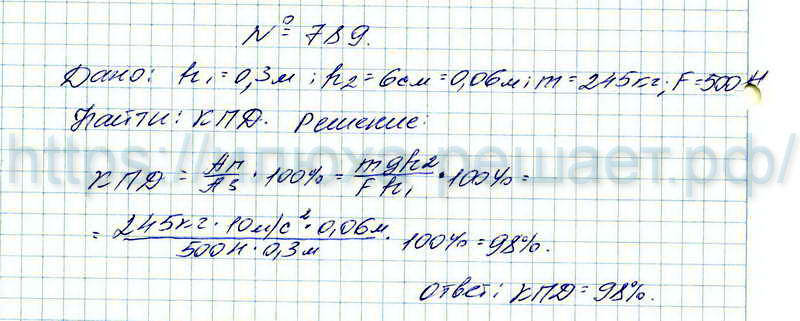 № 789.
Дано: h₁ = 0,3м ; h₂ = 6см = 0,06м; m = 245кг; F = 500Н
Найти: КПД. Решение:
https://шпора-решает.рф/
КПД = Aп/Aз · 100% = mgh₂/Fh₁ · 100% =
= 245кг · 10м/с² · 0,06м / 500Н · 0,3м · 100% = 98%.
Ответ: КПД = 98%.